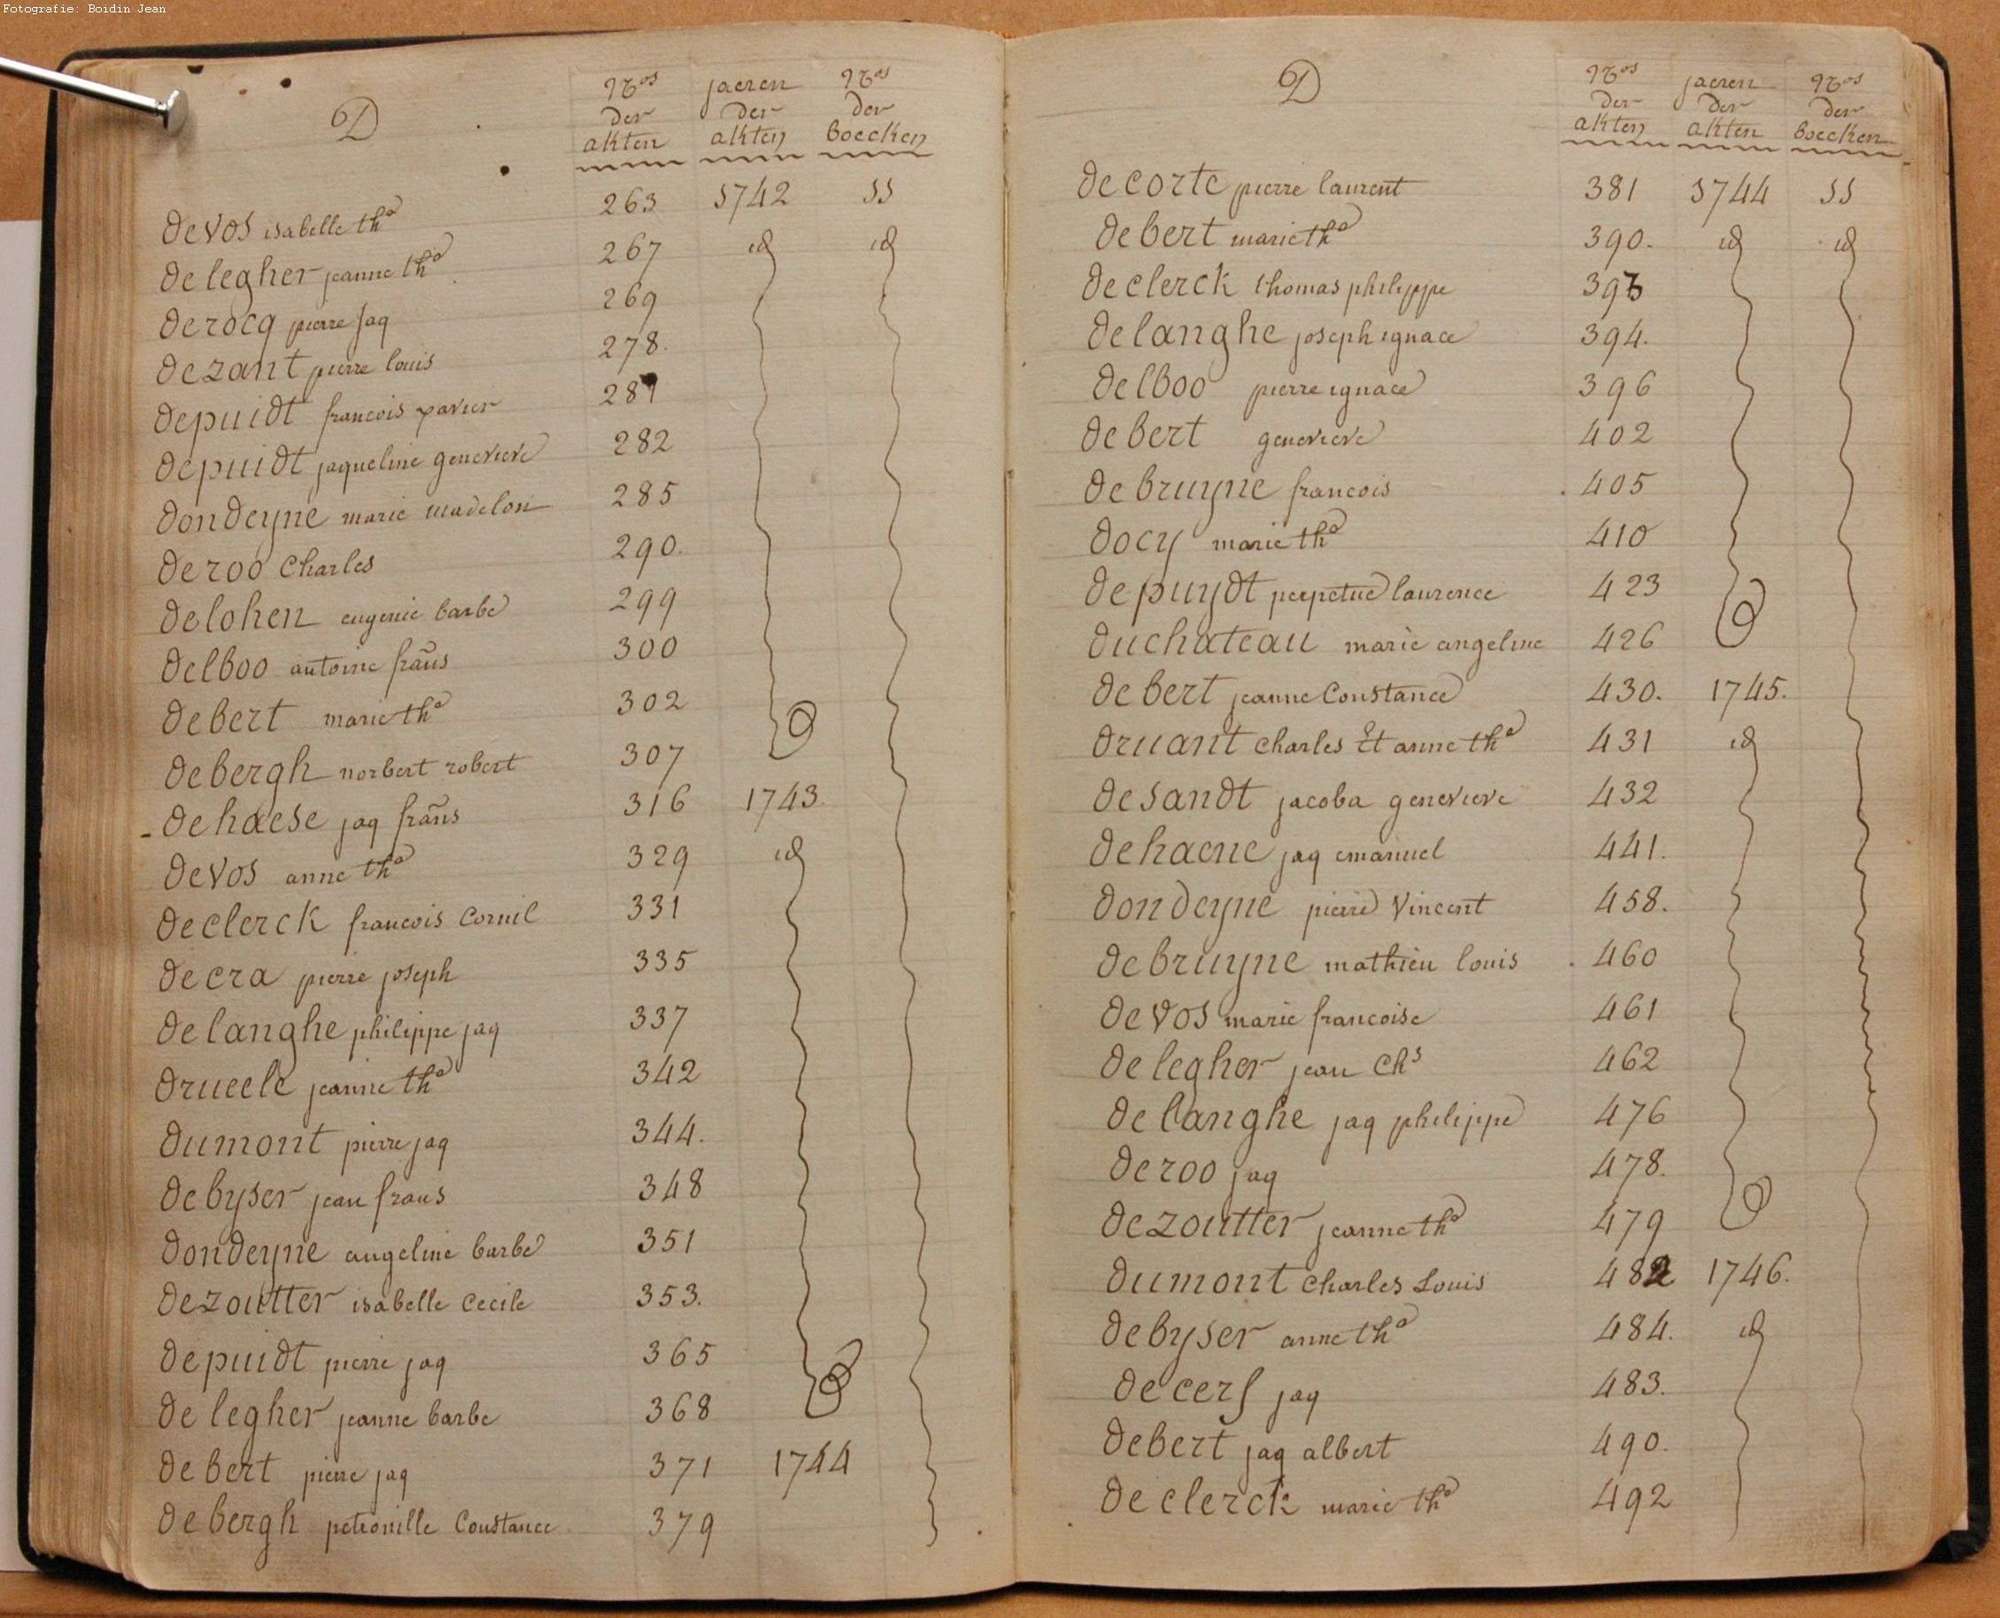 Fotografie: Boidin Jean
D
Nos der akten
jaeren der akten
Nos der boecken
devos isabelle tha 263 1742 11
delegher jeanne tha 267 id id
derocq pierre jaq 269
dezant pierre louis 278.
depuidt francois xavier 281
depuidt jaqueline genevieve 282
dondeyne marie madelon 285
deroo Charles 290.
delohen eugenie barbe 299
delboo antoine frans 300
debert marie tha 302
debergh norbert robert 307
dehaese jaq frans 316 1743.
devos anne tha 329 id
declerck francois Cornil 331
decra pierre joseph 335
delanghe philippe jaq 337
drueele jeanne tha 342
dumont pierre jaq 344.
debyser jean frans 348
dondeyne angeline barbe 351
dezoutter isabelle Cecile 353.
depuidt pierre jaq 365
delegher jeanne barbe 368
debert pierre jaq 371 1744
debergh petronille Constance 379
D
Nos der akten
jaeren der akten
Nos der boecken
decorte pierre laurent 381 1744 11
debert marie tha 390. id id
declerck thomas philippe 393
delanghe joseph ignace 394.
delboo pierre ignace 396
debert genevieve 402
debruyne francois 405
docy marie tha 410
depuydt perpetue laurence 423
duchateau marie angeline 426
debert jeanne Constance 430. 1745.
druant Charles Et anne tha 431 id
desandt jacoba genevieve 432
dehaene jaq emanuel 441.
dondeyne pierre Vincent 458.
debruyne mathieu louis 460
devos marie francoise 461
delegher jean Chs 462
delanghe jaq philippe 476
deroo jaq 478.
dezoutter jeanne tha 479
dumont Charles Louis 482 1746.
debyser anne tha 484. id
decerf jaq 483.
debert jaq albert 490.
declerck marie tha 492